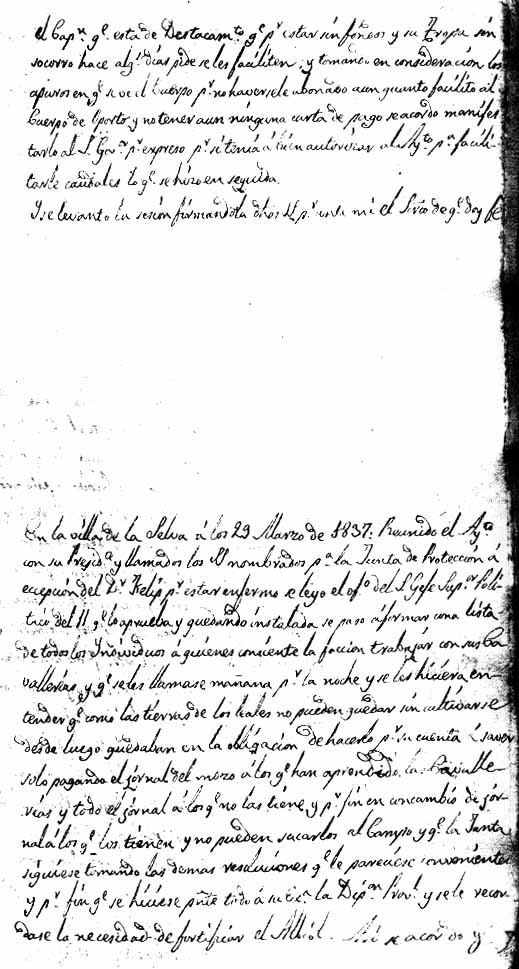 el Cap.n q.e está de Destacam.to q.e p.r estar sin fondos y su Tropa sin
socorro hace alg.s dias pide se les faciliten; y tomando en consideración los
apuros en q.e se ve el Cuerpo p.r no haversele abonado aun quanto facilitó al
Cuerpo de Oporto y no tener aun ninguna carta de pago se acordó manifes
tarlo al S. Gov.r p.r expreso p.r si tenia á bien autorizar al Ay.to p.a facili-
tarle caudales lo q.e se hizo en seguida.
Y se levantó la sesión firmandola dhos SS p.r ante mi el Srio de q.e doy fe
En la villa de la Selva á los 29 Marzo de 1837: Reunido el Ay.to
con su Presid.te y llamados los SS nombrados p.a la Junta de Protección á
ecepción del D.r Felip p.r estar enfermo se leyo el of.o del S. Gefe Sup.or Polí-
tico del 11 q.e lo aprueba y quedando instalada se paso á formar una lista
de todos los Individuos á quienes consiente la faccion trabajar con sus Ca
vallerias, y q.e se les llamase mañana p.r la noche y se les hiciera en-
tender q.e como las tierras de los leales no pueden quedar sin cultivarse
desde luego quedaban en la obligación de hacerlo p.r su cuenta á saver
solo pagando el jornal del mozo á los q.e han aprendido las Cavalle-
rias y todo el jornal á los q.e no las tiene, y p.r fin en concambio de jor-
nal á los q.e los tienen y no pueden sacarlos al Campo y q.e la Junta
siguiese tomando las demas resoluciones q.e le pareciese convenientes
y p.r fin q.e se hiciese pnte todo á su Ex.a la Dip.on Prov.l y se le recor-
dase la necesidad de fortificar el Alliol. Asi se acordó y